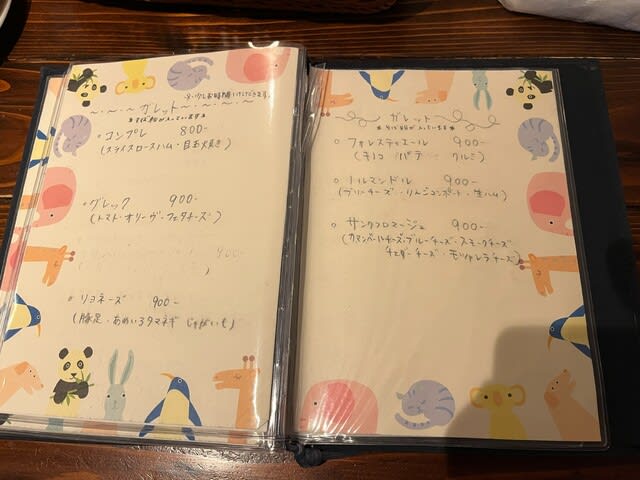 ※少しお時間いただきます。
～・～・～ ガレット ～・～・～・～
＊そば粉が入っています＊
○ コンプレ 800-
(スライスロースハム・目玉焼き)
○ グレック 900-
(トマト・オリーヴ・フェタチーズ)
900-
○ リヨネーズ 900-
(豚足・あめいろタマネギ じゃがいも)
ガレット
＊そば粉が入っています＊
○ フォレスティエール 900-
(キノコ パテ クルミ)
○ トルマンドル 900-
(ブリーチーズ・りんごコンポート・生ハム)
○ サンクフロマージュ 900-
(カマンベールチーズ・ブルーチーズ・スモークチーズ
チェダーチーズ・モッツァレラチーズ)